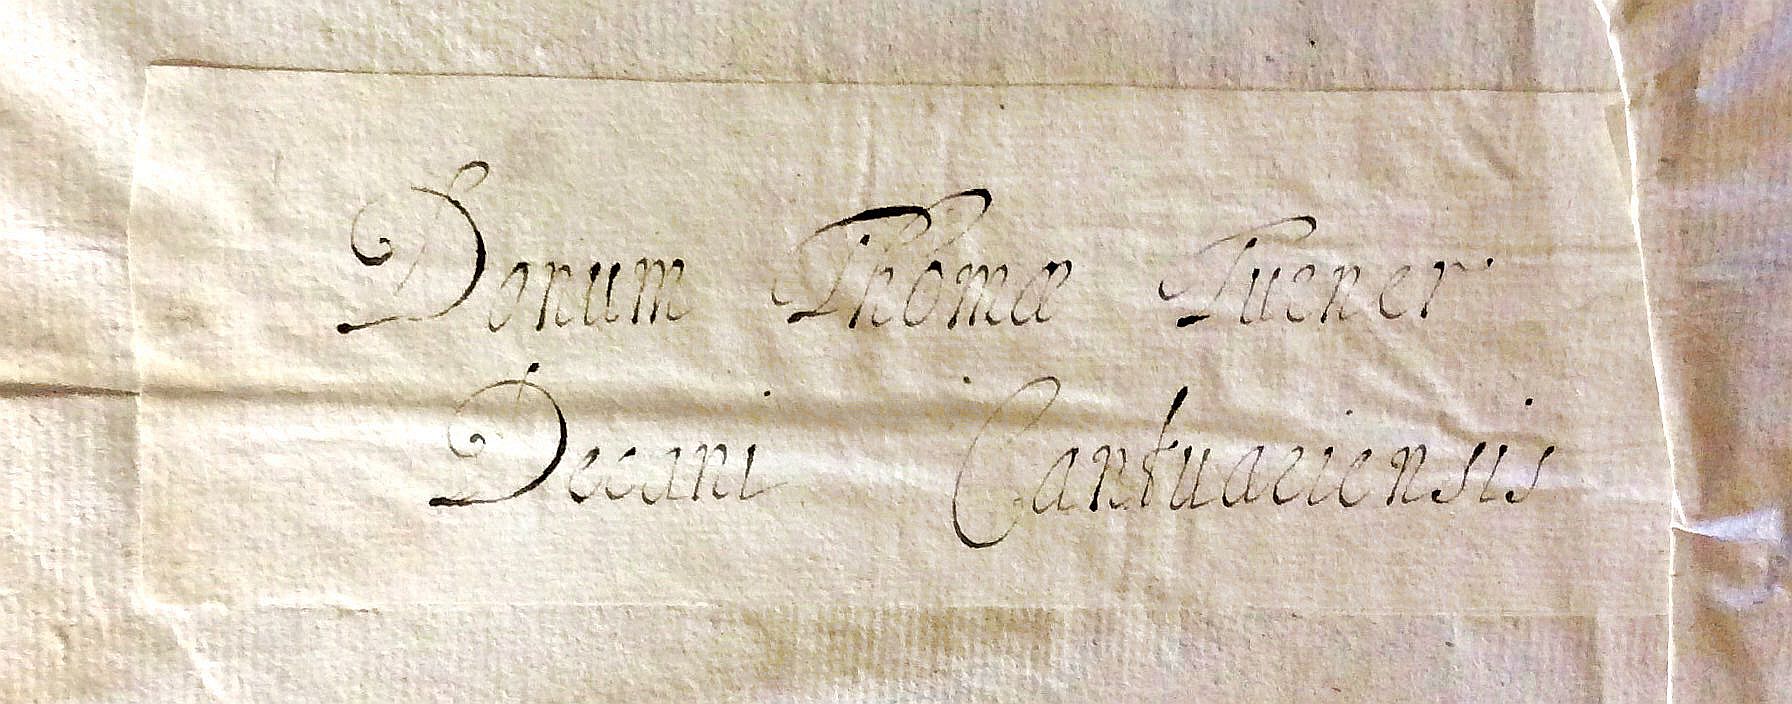 Donum Thomæ Turner
Decani Cantuariensis